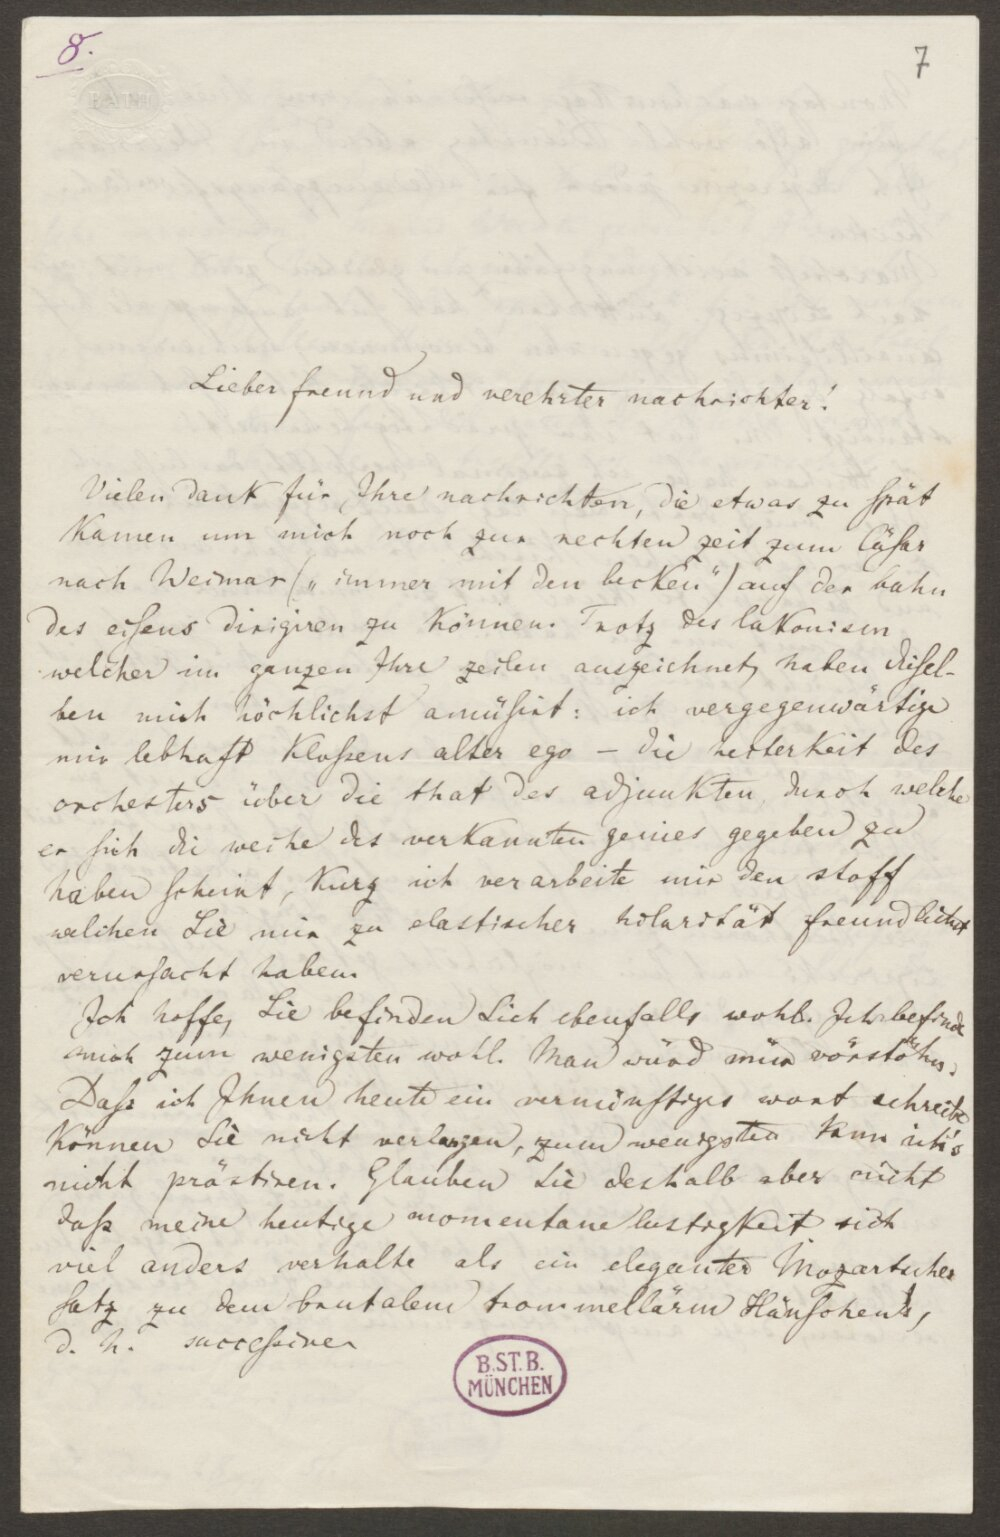 8.
7
BATH
Lieber freund und verehrter nachrichter!
Vielen dank für Ihre nachrichten, die etwas zu spät
kamen um mich noch zur rechten zeit zum Cäsar
nach Weimar („immer mit den becken“) auf der bahn
des eisens dirigiren zu können. Trotz des lakonism
welcher im ganzen Ihre zeilen auszeichnet, haben diesel-
ben mich höchlichst amüsirt: ich vergegenwärtige
mir lebhaft Kloßens alter ego – die heiterkeit des
orchesters über die that des adjunkten, durch welche
er sich die weihe des verkannten genies gegeben zu
haben scheint, kurz ich verarbeite mir den stoff
welchen Sie mir zu elastischer hilarität freundlichst
verursacht haben.
Ich hoffe, Sie befinden Sich ebenfalls wohl. Ich befinde
mich zum wenigsten wohl. Man würd mür vörstöhn.
Daß ich Ihnen heute ein vernünftiges wort schreibe
können Sie nicht verlangen, zum wenigsten kann ich's
nicht prästiren. Glauben Sie deshalb aber nicht
daß meine heutige momentane lustigkeit sich
viel anders verhalte als ein eleganter Mozartscher
satz zu dem brutalem trommellärm Hänschen's,
d. h. successiver
B.ST.B.
MÜNCHEN